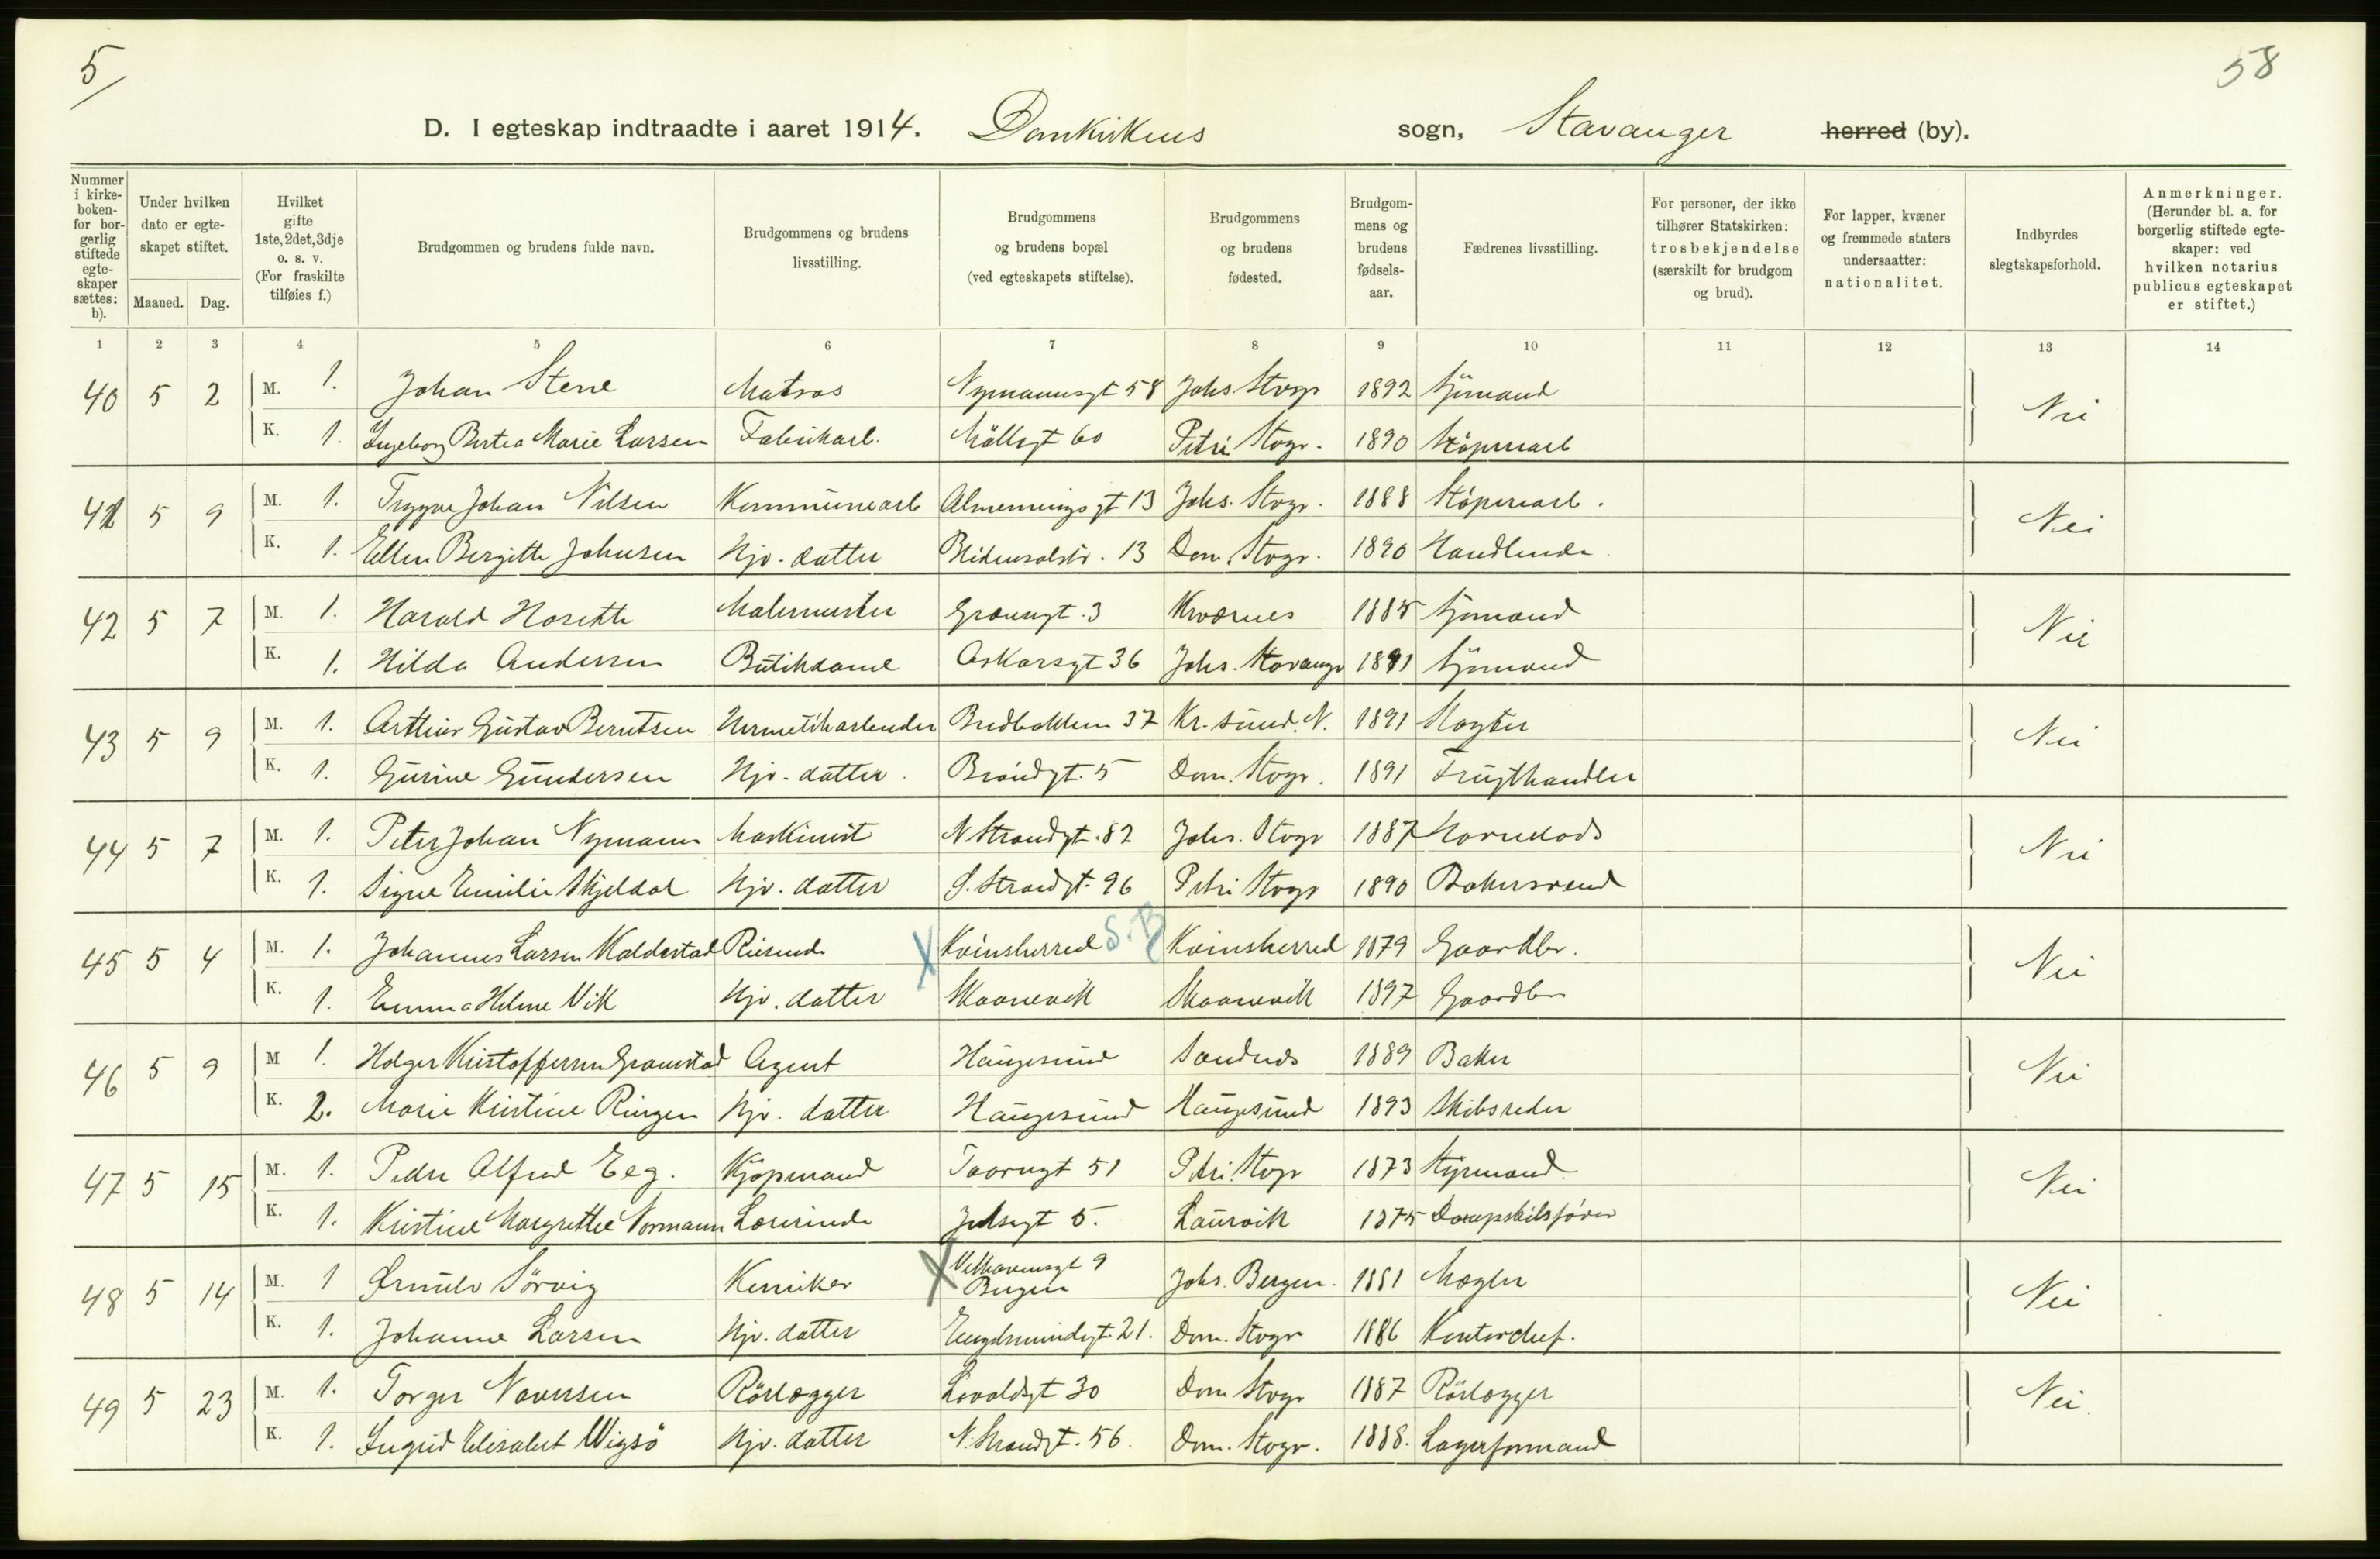 5/
58
D. I egteskap indtraadte i aaret 1914. Domkirkens sogn, Stavanger herred (by).
Nummer i kirke-boken- for bor-gerlig stiftede egte-skaper sættes: b).
Under hvilken dato er egte-skapet stiftet.
Maaned. Dag.
Hvilket gifte 1ste, 2det, 3dje o. s. v. (For fraskilte tilføies f.)
Brudgommen og brudens fulde navn.
Brudgommens og brudens livsstilling.
Brudgommens og brudens bopæl (ved egteskapets stiftelse).
Brudgommens og brudens fødested.
Brudgom-mens og brudens fødsels-aar.
Fædrenes livsstilling.
For personer, der ikke tilhører Statskirken: trosbekjendelse (særskilt for brudgom og brud).
For lapper, kvæner og fremmede staters undersaatter: nationalitet.
Indbyrdes slegtskapsforhold.
Anmerkninger. (Herunder bl. a. for borgerlig stiftede egte-skaper: ved hvilken notarius publicus egteskapet er stiftet.)
1 2 3 4 5 6 7 8 9 10 11 12 13 14
40 5 2 M. 1. Johan Stene Matros Nymannsgt 58 Johs Stvgr 1892 Sjømand Nei
K. 1. Ingeborg Bertea Marie Larsen Fabrikarb. Møllegt 60 Petri Stvgr. 1890 Støperiarb
41 5 9 M. 1. Trygve Johan Nilsen Kommunearb Almenningsgt 13 Johs. Stvgr. 1888 Støperiarb. Nei
K. 1. Ellen Bergitte Johnsen Hjv. datter 13 Dom. Stvgr. 1890 Handlende
42 5 7 M. 1. Harald Malermester Grønnegt. 3 Kværnes 1885 Sjømand Nei
K. 1. Hilda Andersen Butikdame Oskarsgt 36 Johs. Stavanger 1891 Sjømand
43 5 9 M. 1. Arthur Gustav Berntsen Hermetikarbeider Bredbakken 37 Kr.sund. N. 1891 Slagter Nei
K. 1. Gurine Gundersen Hjv. datter. Brøndgt. 5 Dom. Stvgr. 1891 Frugthandler
44 5 7 M. 1. Peter Johan Nymann Maskinist N Strandgt. 82 Johs. Stvgr 1887 Nei
K. 1. Signe Emilie Skjeldal Hjv. datter S. Strandgt. 96 Petri Stvgr 1890 Bakersvend
45 5 4 M. 1. Johannes Larsen Maldestad Reisende X Kvinsherred S. B Kvinsherred 1879 Gaardbr. Nei
K. 1. Emma Helene Vik Hjv. datter Skaanevik Skaanevik 1897 Gaardbr
46 5 9 M 1. Holger Kristoffersen Gramstad Agent Haugesund Sandnes 1889 Baker Nei
K. 2. Marie Kristine Ringen Hjv. datter Haugesund Haugesund 1893 Skibsreder
47 5 15 M. 1. Peder Alfred Eeg. Kjøpmand Taarngt 51 Petri Stvgr 1873 Styrmand Nei
K. 1. Kristine Margrethe Normann Lærerinde 5. Laurvik 1875 Dampskibsfører
48 5 14 M. 1 Ørnulv Sørvig Kemiker X Welhavensgt 9 Bergen Johs. Bergen. 1881 Mægler Nei
K. 1. Johanne Larsen Hjv. datter Engelsmindegt 21. Dom. Stvgr 1886 Kontorchef.
49 5 23 M. 1. Torger Naversen Rørlægger Løvoldsgt 30 Dom Stvgr 1887 Rørlægger Nei.
K. 1. Ingrid Elisabet Wigsø Hjv. datter N. Strandgt. 56. Dom. Stvgr. 1888. Lagerformand